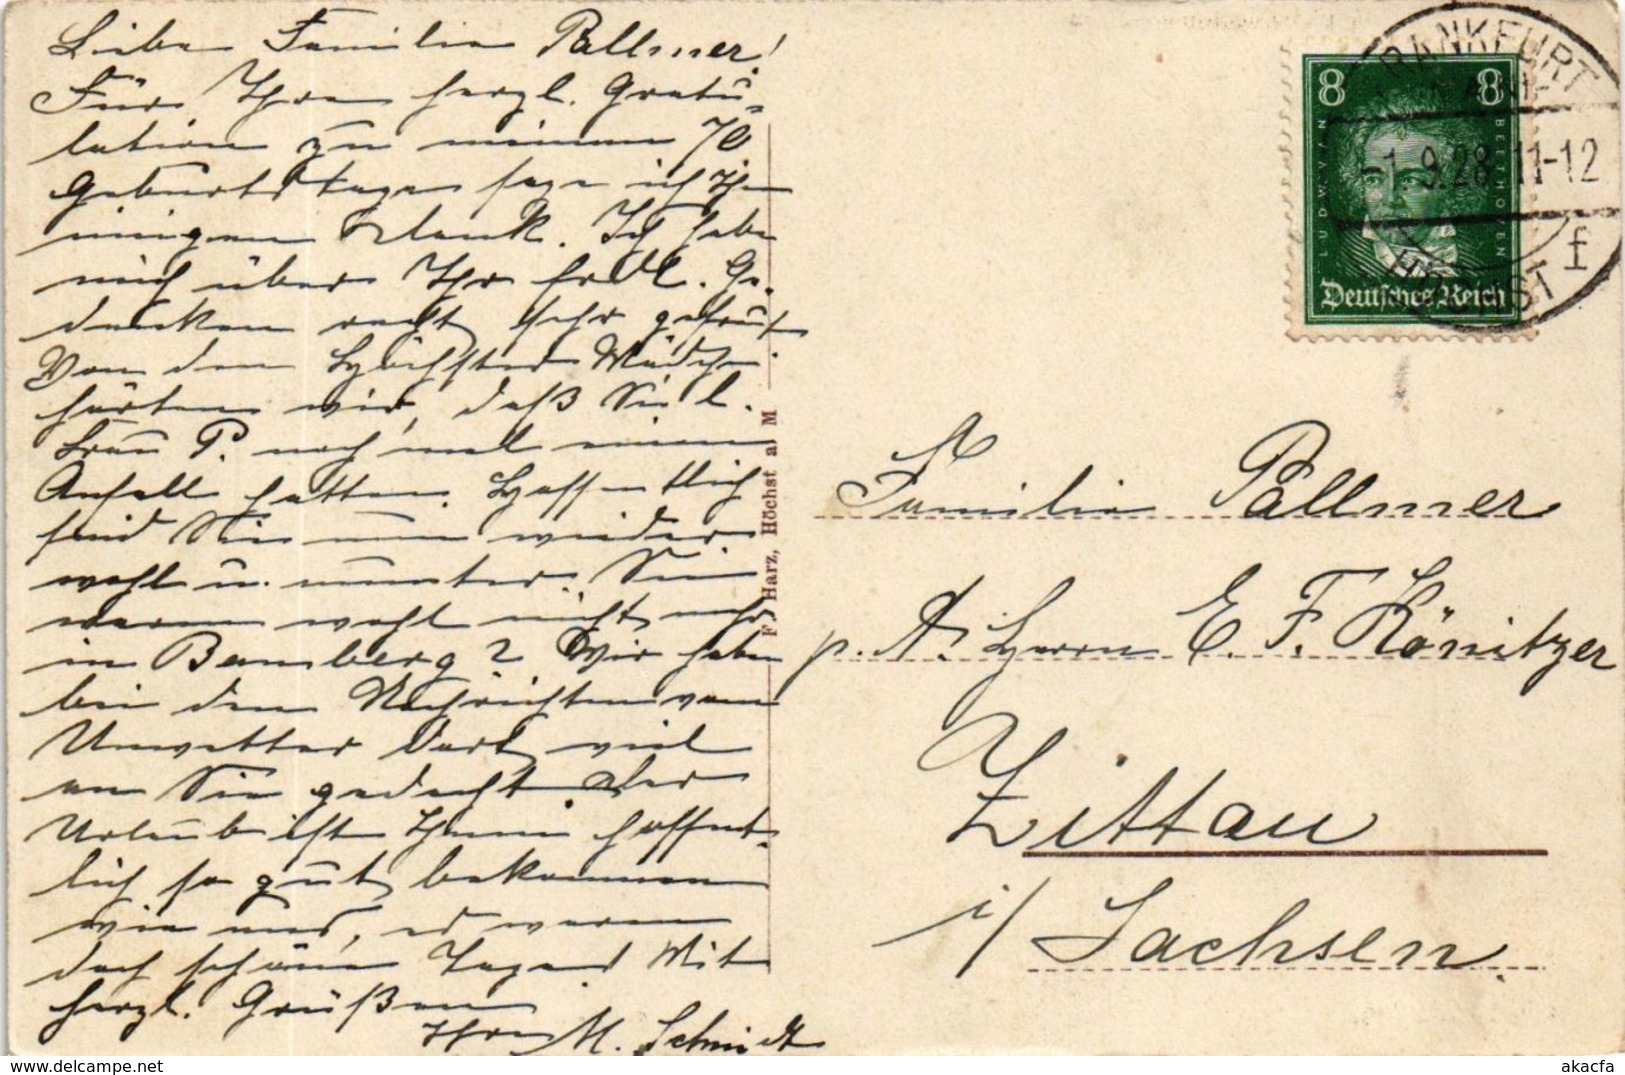 Liebe Familie Pallmer!
Für Ihre herzl. Gratu-
lation zu meinem 70
Geburtstage sage ich Ihn
innigen Dank. Ich habe
mich über Ihr frdl. Ge-
denken recht sehr gefreut
Von den Höchster Mädchen
hörten wir, daß Sie l.
Frau P. noch'mal einen
Anfall hatten. Hoffentlich
sind Sie nun wieder
wohl u. munter. Sie
waren wohl nicht mehr
in Bamberg? Wir haben
bei den Nachrichten vom
Unwetter dort viel
an Sie gedacht. Der
Urlaub ist Ihnen hoffent-
lich so gut bekommen
wie uns, es waren
doch schöne Tage. Mit
herzl. Grüßen
Ihre M. Schmidt
F. Harz, Höchst a. M
8 8
LUDW. VAN BEETHOVEN
Deutsches Reich
FRANKFURT
(MAIN)-
1.9.28. 11-12
HÖCHST
f
Familie Pallmer
p. A. Herrn E. F. Könitzer
Zittau
i/ Sachsen.
akacfa